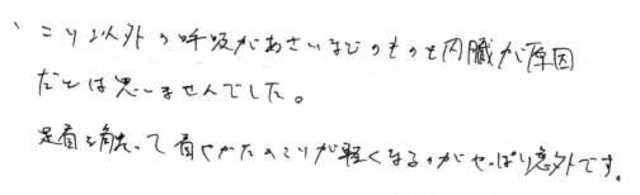 、こり以外の呼吸があさいなどのものも内臓が原因
だとは思いませんでした。
足首を触って首やかたのこりが軽くなるのがやっぱり意外です。